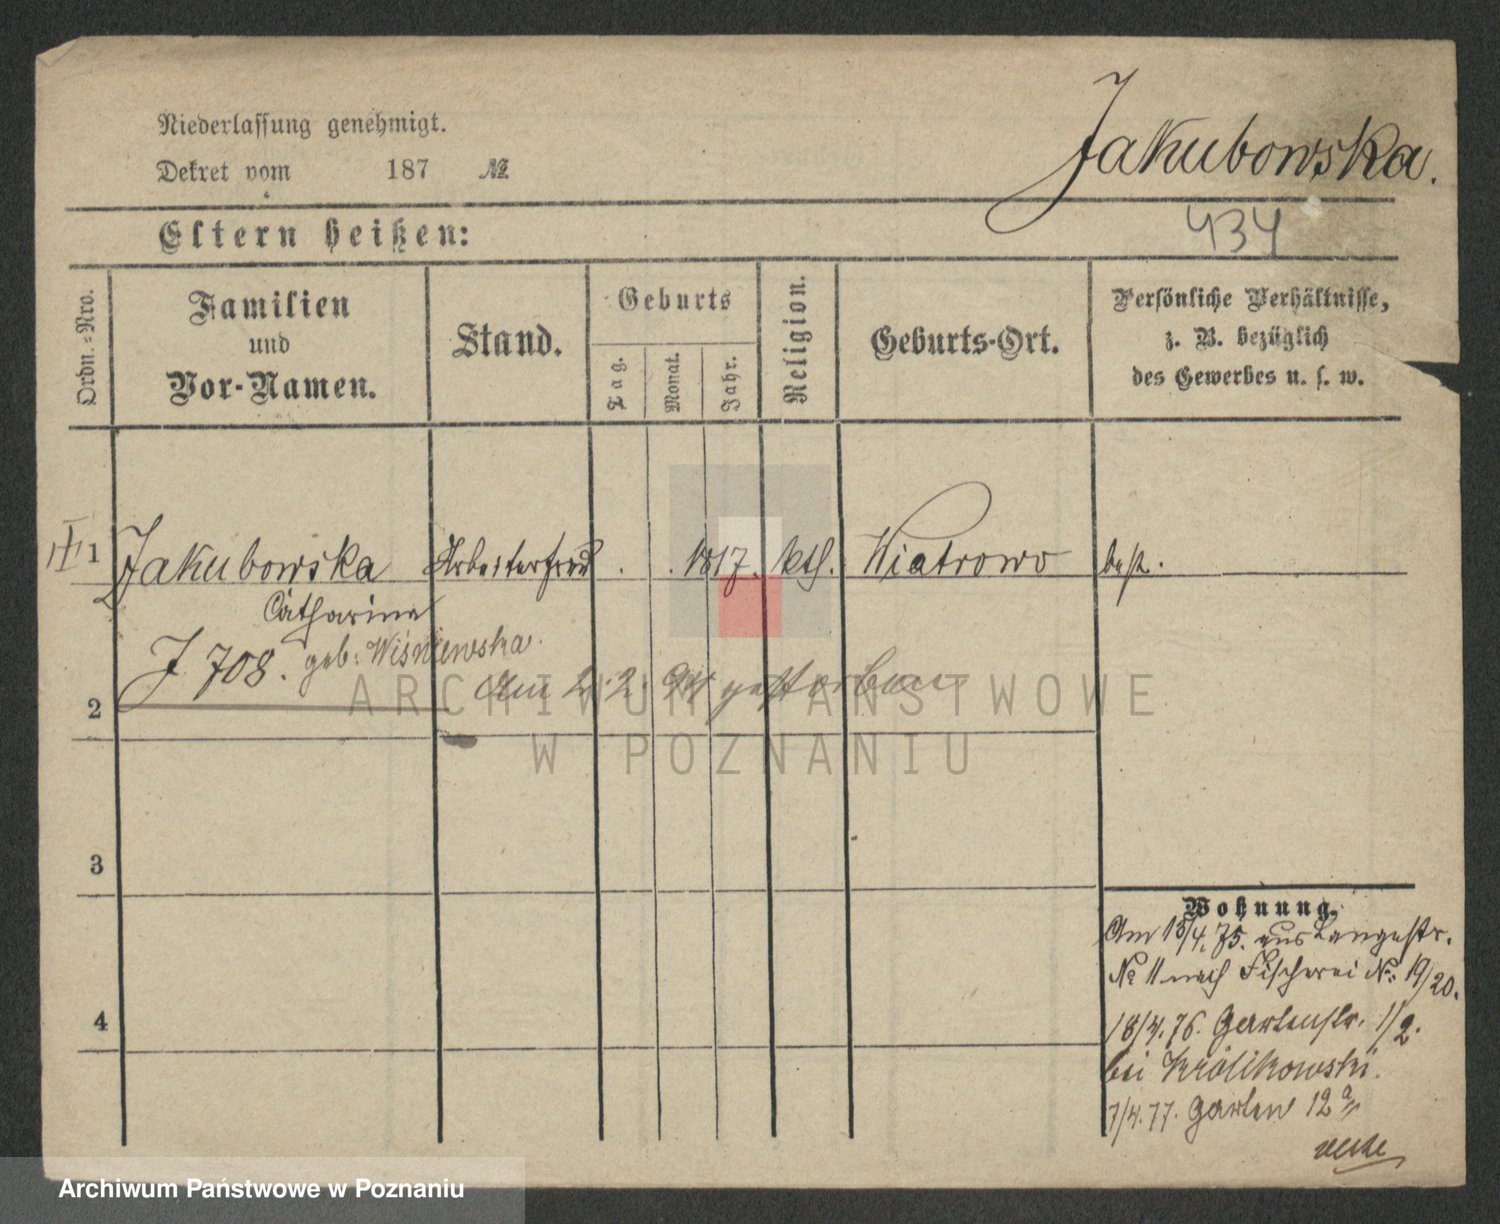 Niederlassung genehmigt.
Dekret vom 187 №
Jakubowska.
434
Eltern heißen:
Ordn.-Nro.
Familien
und
Vor-Namen.
Stand.
Geburts
Tag.
Monat.
Jahr.
Religion.
Geburts-Ort.
Persönliche Verhältnisse,
z. B. bezüglich
des Gewerbes u. s. w.
III 1 Jakubowska Arbeiterfrau . . 1817. kth. Wiatrowo
Catharina
geb: Wiśniewska.
J 708.
Am 2. 2. 94 gestorben
2
3
4
Wohnung.
Am 15/4. 75. aus Langestr.
№ 11 nach Fischerei №: 19/20.
18/4. 76. Gartenstr. 1/2.
bei Królikowski.
7/4. 77. Garten 12a
ARCHIWUM PAŃSTWOWE
W POZNANIU
Archiwum Państwowe w Poznaniu